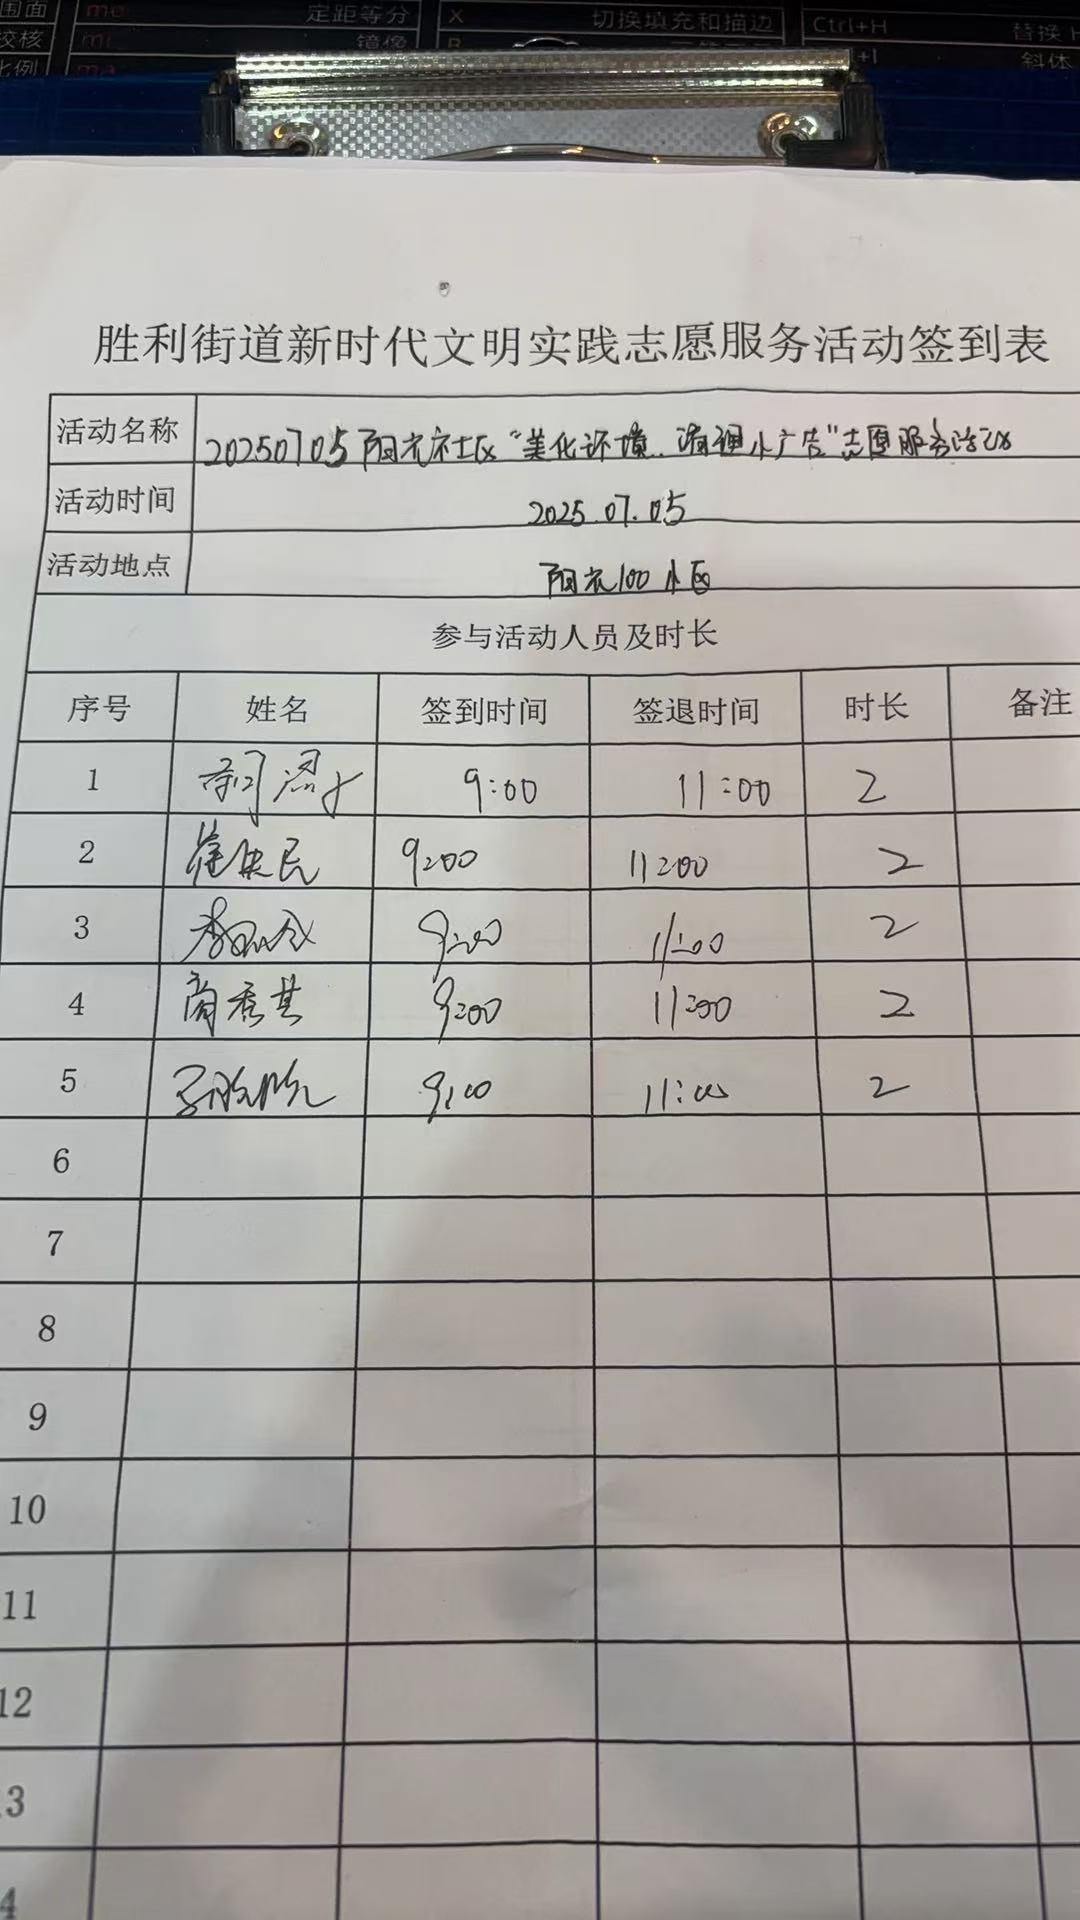 定距等分 X 切换填充和描边 Ctrl+H 替换
镜像 斜体
胜利街道新时代文明实践志愿服务活动签到表
活动名称 20250705阳光社区“美化环境、清理小广告”志愿服务活动
活动时间 2025.07.05
活动地点 阳光100小区
参与活动人员及时长
序号 姓名 签到时间 签退时间 时长 备注
1 9:00 11:00 2
2 9:00 11:00 2
3 9:00 11:00 2
4 商秀其 9:00 11:00 2
5 9:00 11:00 2
6
7
8
9
10
11
12